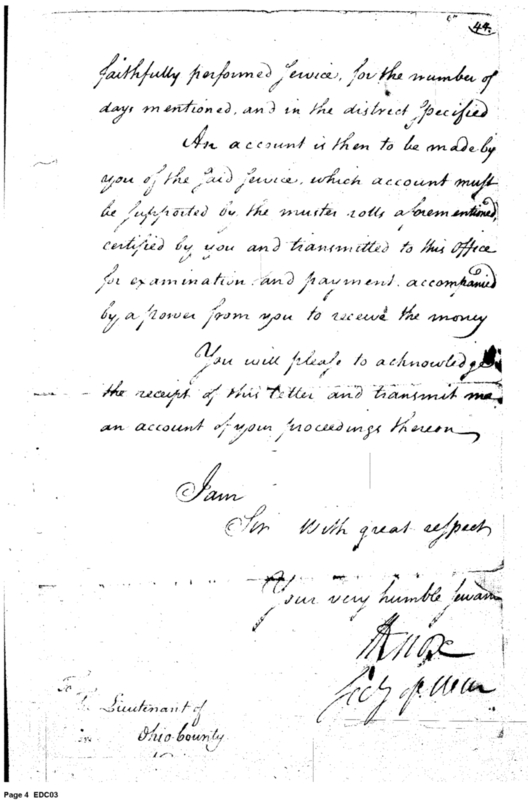 44.
faithfully performed service, for the number of
days mentioned, and in the district specified
An account is then to be made by
you of the said service, which account must
be supported by the muster rolls aforementioned,
certified by you and transmitted to this office
for examination and payment. accompanied
by a power from you to receive the money
You will please to acknowledge
the receipt of this letter and transmit me
an account of your proceedings thereon
I am
Sir With great respect
Your very humble servant
HKnox
Secy of War
To
The Lieutenant of
Ohio County
Page 4 EDC03